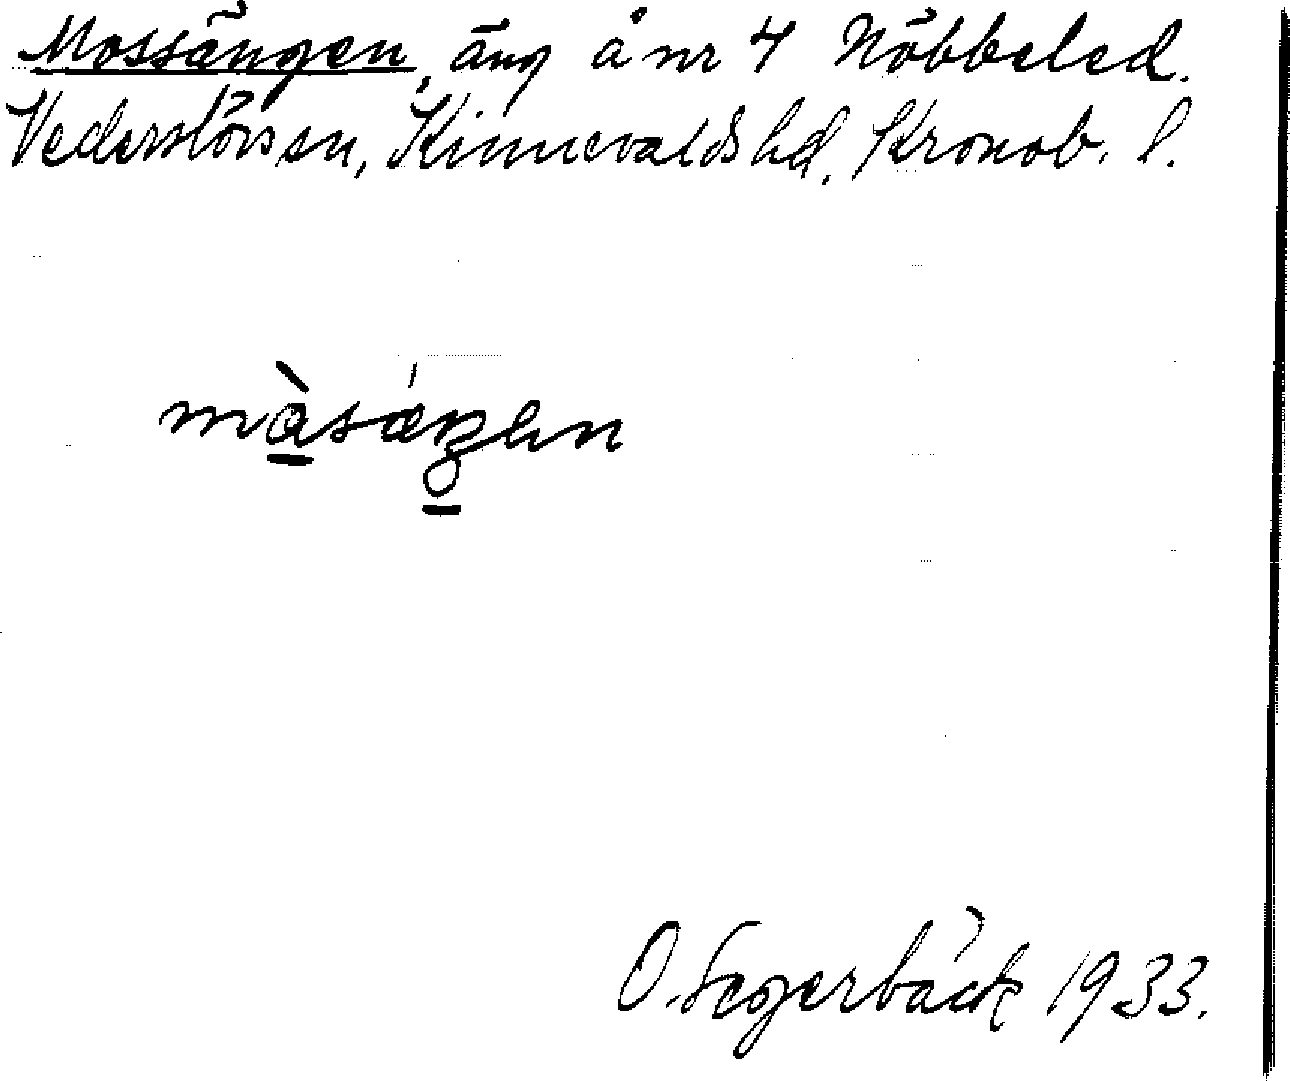 Mossängen, äng å nr 4 Nöbbeled.
Vederslövs sn, Kinnevalds hd. Kronob. l.
O. Segerbäck 1933.